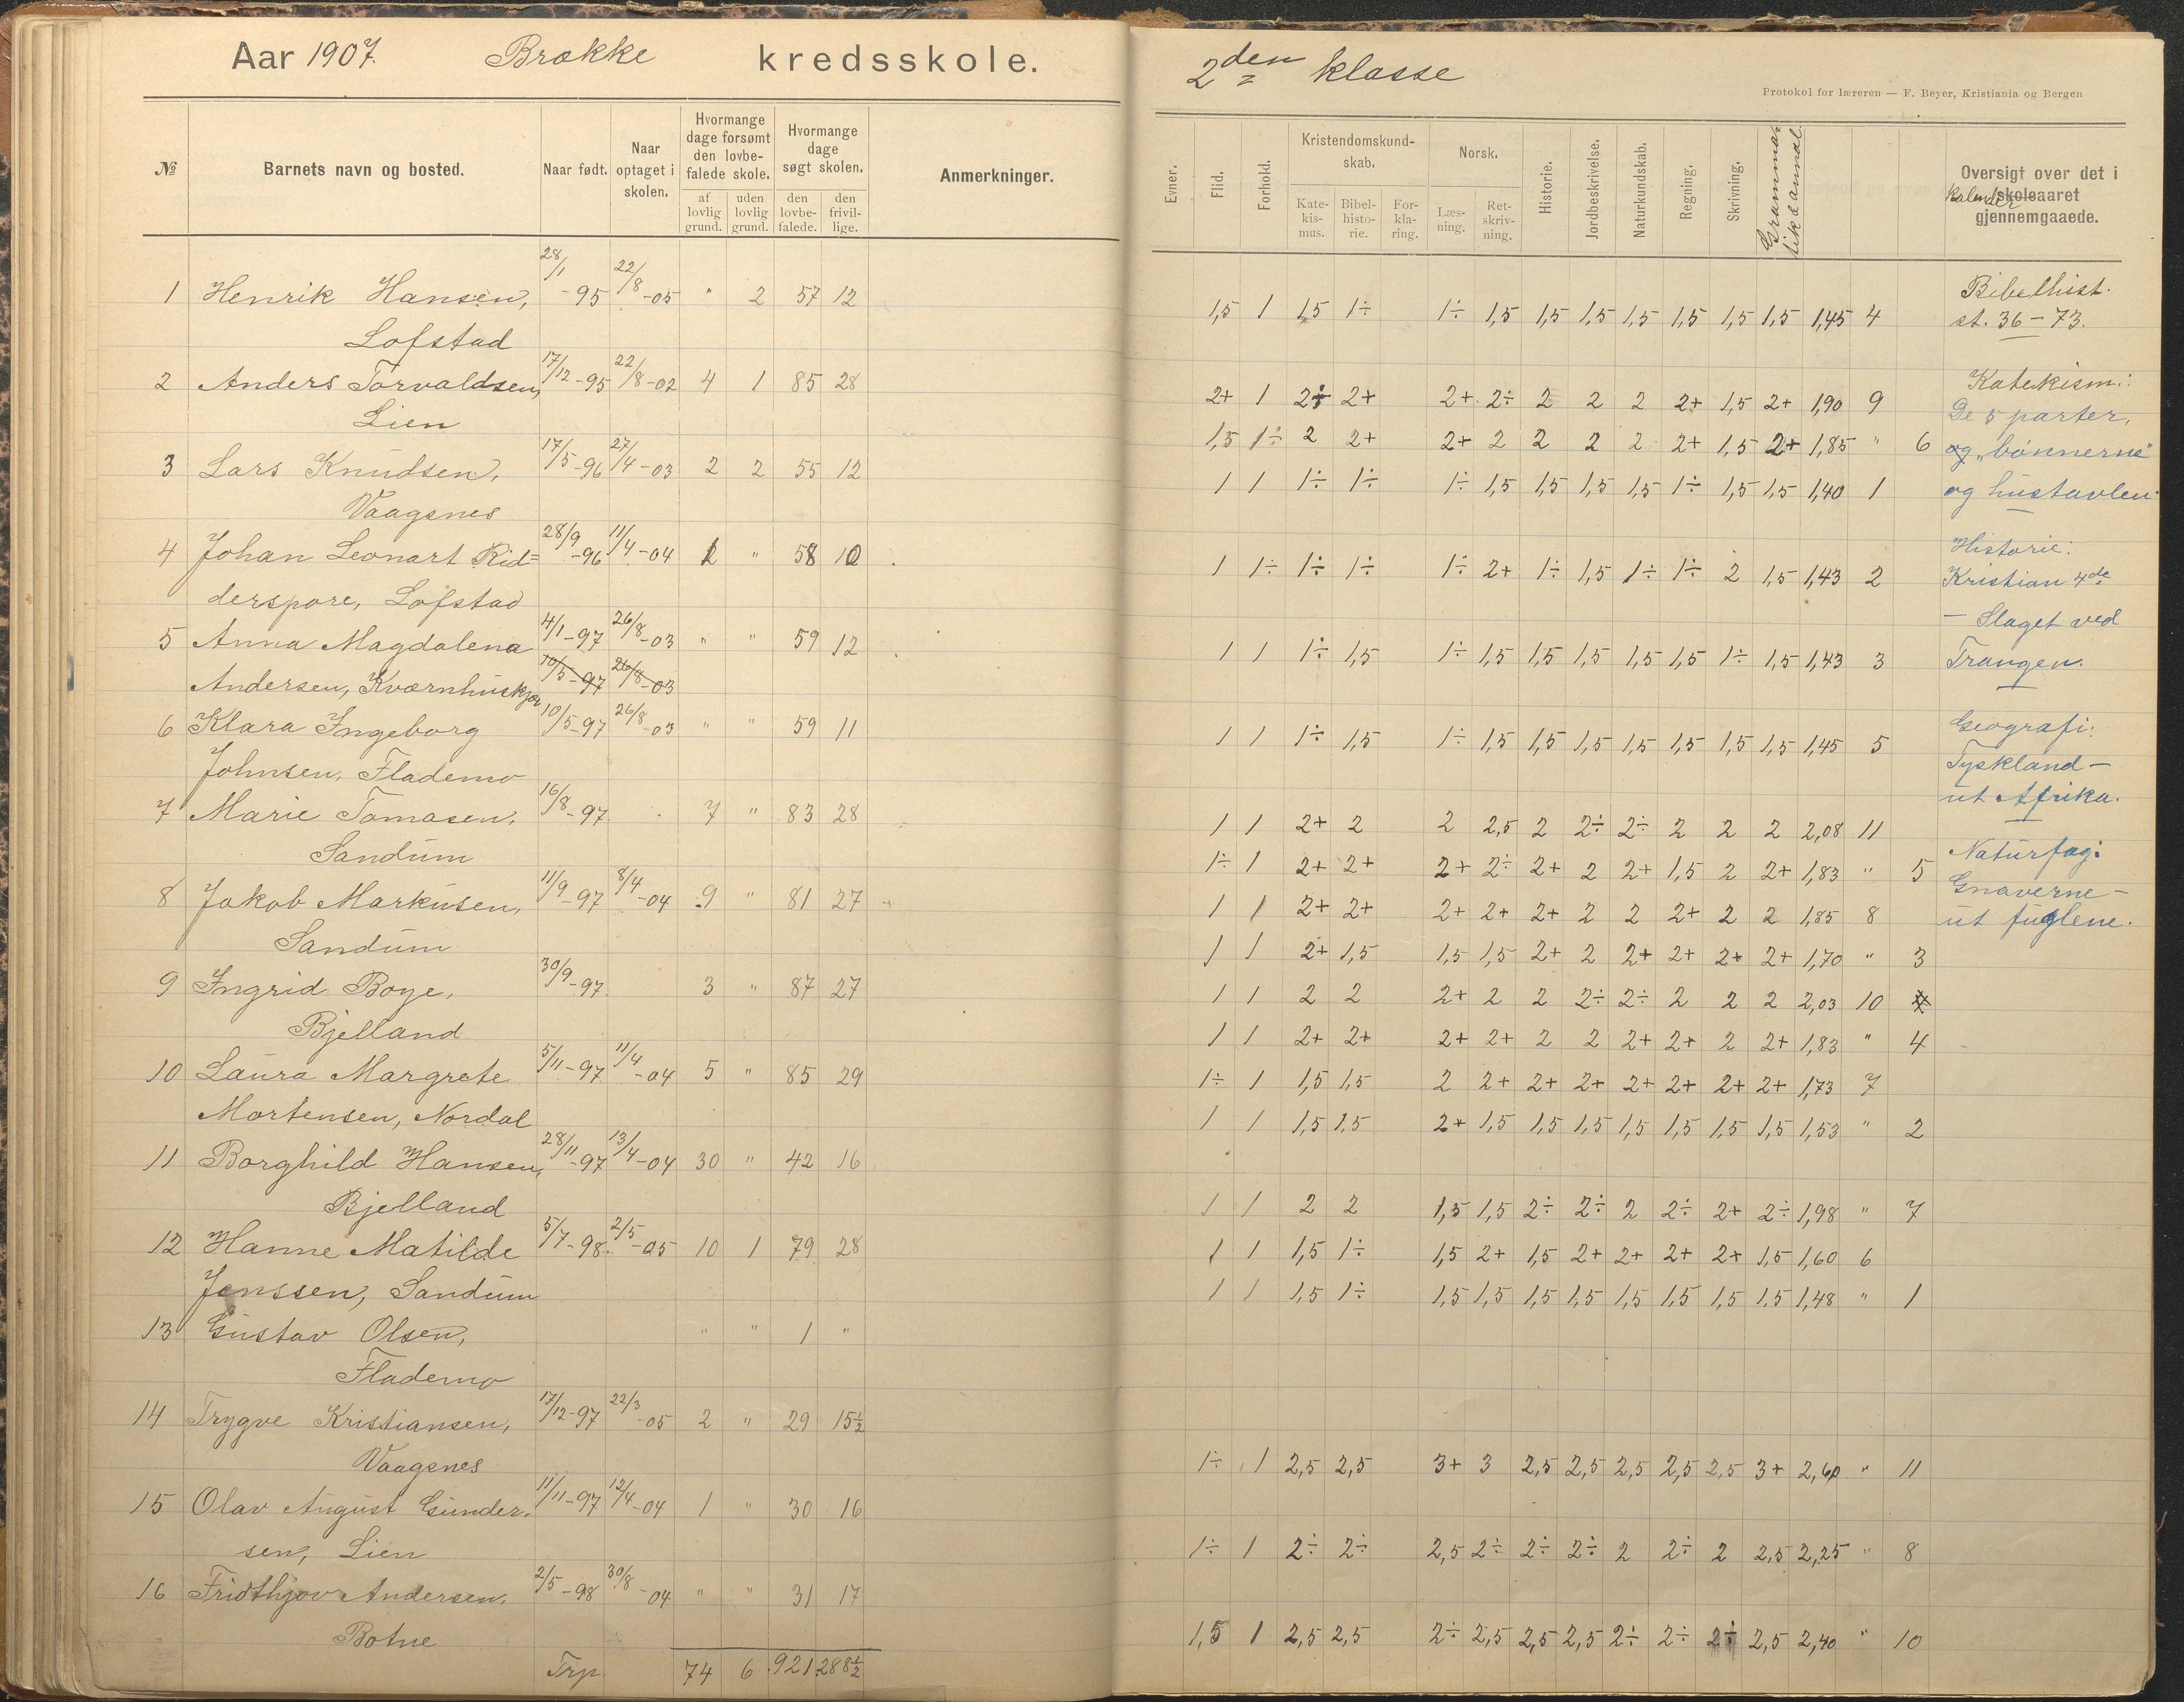 Aar 1907. Brokke kredsskole.
№ Barnets navn og bosted. Naar født. Naar optaget i skolen. Hvormange dage forsømt den lovbefalede skole. Hvormange dage søgt skolen. Anmerkninger.
af lovlig grund. uden lovlig grund. den lovbefalede. den frivillige.
1 Henrik Hansen, 28/1-95 22/8-05 " 2 57 12
Lofstad
2 Anders Torvaldsen, 17/12-95 22/8-02 4 1 85 28
Lien
3 Lars Knudsen, 17/5-96 27/4-03 2 2 55 12
Vaagsnes
4 Johan Leonart Rid= 28/9-96 11/4-04 1 " 58 10
derspore, Lofstad
5 Anna Magdalena 4/1-97 26/8-03 " " 59 12
Andersen, Kværnhuskjær 10/5-97 26/8-03
6 Klara Ingeborg 10/5-97 26/8-03 " " 59 11
Johnsen, Flademo
7 Marie Tomasen, 16/8-97 7 " 83 28
Sandum
8 Jakob Markusen, 11/9-97 8/4-04 9 " 81 27
Sandum
9 Ingrid Boye, 30/9-97 3 " 87 27
Bjelland
10 Laura Margrete 5/11-97 11/4-04 5 " 85 29
Mortensen, Nordal
11 Borghild Hansen, 28/11-97 13/4-04 30 " 42 16
Bjelland
12 Hanne Matilde 5/7-98 2/5-05 10 1 79 28
Jenssen, Sandum
13 Gustav Olsen, " " 1 "
Flademo
14 Trygve Kristiansen, 17/12-97 22/3-05 2 " 29 15½
Vaagsnes
15 Olav August Gunder- 11/11-97 12/4-04 1 " 30 16
sen, Lien
16 Fridthjov Andersen, 2/5-98 30/8-04 " " 31 17
Botne
Trp. 74 6 921 288½
2den klasse
Protokol for læreren — F. Beyer, Kristiania og Bergen
Evner. Flid. Forhold. Kristendomskundskab. Norsk. Historie. Jordbeskrivelse. Naturkundskab. Regning. Skrivning. Grammatik & annal. Oversigt over det i kalender skoleaaret gjennemgaaede.
Katekismus. Bibelhistorie. Forklaring. Læsning. Retskrivning.
1,5 1 1,5 1÷ 1÷ 1,5 1,5 1,5 1,5 1,5 1,5 1,5 1,45 4
2+ 1 2÷ 2+ 2+ 2÷ 2 2 2 2+ 1,5 2+ 1,90 9
1,5 1÷ 2 2+ 2+ 2 2 2 2 2+ 1,5 2+ 1,85 " 6
1 1 1÷ 1÷ 1÷ 1,5 1,5 1,5 1,5 1÷ 1,5 1,5 1,40 1
1 1÷ 1÷ 1÷ 1÷ 2+ 1÷ 1,5 1÷ 1÷ 2 1,5 1,43 2
1 1 1÷ 1,5 1÷ 1,5 1,5 1,5 1,5 1,5 1÷ 1,5 1,43 3
1 1 1÷ 1,5 1÷ 1,5 1,5 1,5 1,5 1,5 1,5 1,5 1,45 5
1 1 2+ 2 2 2,5 2 2÷ 2÷ 2 2 2 2,08 11
1÷ 1 2+ 2+ 2+ 2÷ 2+ 2 2+ 1,5 2 2+ 1,83 " 5
1 1 2+ 2+ 2+ 2+ 2+ 2 2 2+ 2 2 1,85 8
1 1 2+ 1,5 1,5 1,5 2+ 2 2+ 2+ 2+ 2+ 1,70 " 3
1 1 2 2 2+ 2 2 2÷ 2÷ 2 2 2 2,03 10
1 1 2+ 2+ 2+ 2+ 2 2 2+ 2+ 2 2+ 1,83 " 4
1÷ 1 1,5 1,5 2 2+ 2+ 2+ 2+ 2+ 2+ 2+ 1,73 7
1 1 1,5 1,5 2+ 1,5 1,5 1,5 1,5 1,5 1,5 1,5 1,53 " 2
1 1 2 2 1,5 1,5 2÷ 2÷ 2 2÷ 2+ 2÷ 1,98 " 7
1 1 1,5 1÷ 1,5 2+ 1,5 2+ 2+ 2+ 2+ 1,5 1,60 6
1 1 1,5 1÷ 1,5 1,5 1,5 1,5 1,5 1,5 1,5 1,5 1,48 " 1
1÷ 1 2,5 2,5 3+ 3 2,5 2,5 2,5 2,5 2,5 3+ 2,60 " 11
1÷ 1 2÷ 2÷ 2,5 2÷ 2÷ 2÷ 2 2÷ 2 2,5 2,25 " 8
1,5 1 2,5 2,5 2÷ 2,5 2,5 2,5 2÷ 2÷ 2÷ 2,5 2,40 " 10
Bibelhist.
st. 36 – 73.
Katekism.:
De 5 parter,
og „bønnerne"
og hustavlen.
Historie:
Kristian 4de
– Slaget ved
Trangen.
Geografi:
Tyskland –
ut Afrika.
Naturfag:
Gnaverne –
ut fuglene.